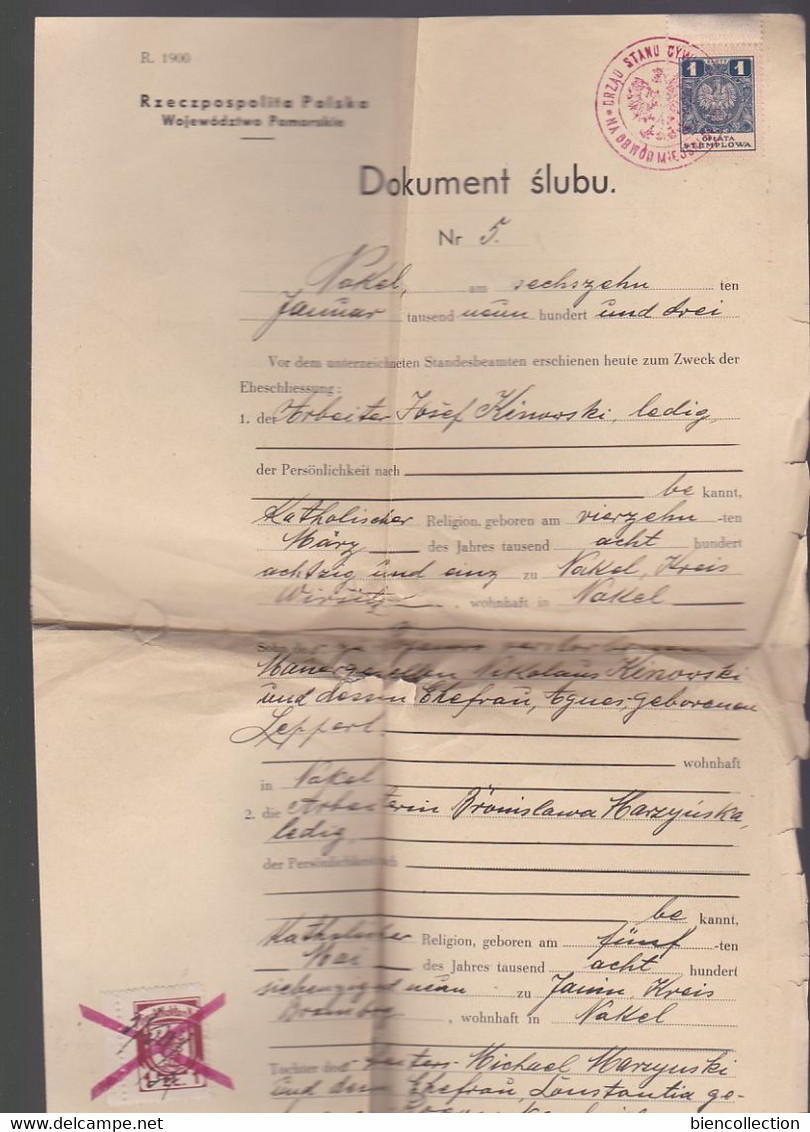 R. 1900
Rzeczpospolita Polska
Województwo Pomorskie
URZĄD STANU CYW
NA OBWÓD MIEJS
1 1
OPŁATA
STEMPLOWA
Dokument ślubu.
Nr 5.
Nakel, am sechszehn ten
Januar tausend neun hundert und drei
Vor dem unterzeichneten Standesbeamten erschienen heute zum Zweck der
Eheschliessung:
1. der Arbeiter Josef Kinowski, ledig,
der Persönlichkeit nach
be kannt,
Katholischer Religion, geboren am vierzehn -ten
März des Jahres tausend acht hundert
achtzig und einz zu Nakel, Kreis
Wirsitz, wohnhaft in Nakel
Sohn des verstorbenen
Maurergesellen Nikolaus Kinowski
und dessen Ehefrau, Agnes geborenen
Leppert
wohnhaft
in Nakel
2. die Arbeiterin Bronislawa Marzyńska,
ledig,
der Persönlichkeit nach
be kannt,
Katholischer Religion, geboren am fünf -ten
Mai des Jahres tausend acht hundert
siebenzig und neun zu Kreis
Bromberg, wohnhaft in Nakel
Tochter des Michael Marzynski
und dessen Ehefrau, Constantia ge-
biencollection